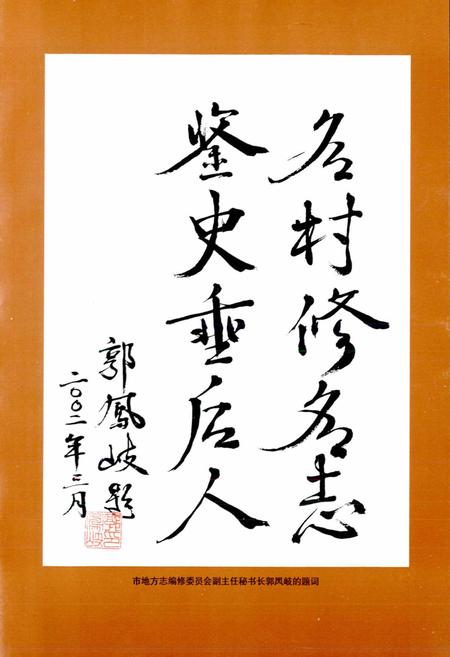 名村修名志
鉴史垂后人
郭凤岐题
二〇〇二年三月
市地方志编修委员会副主任秘书长郭凤岐的题词